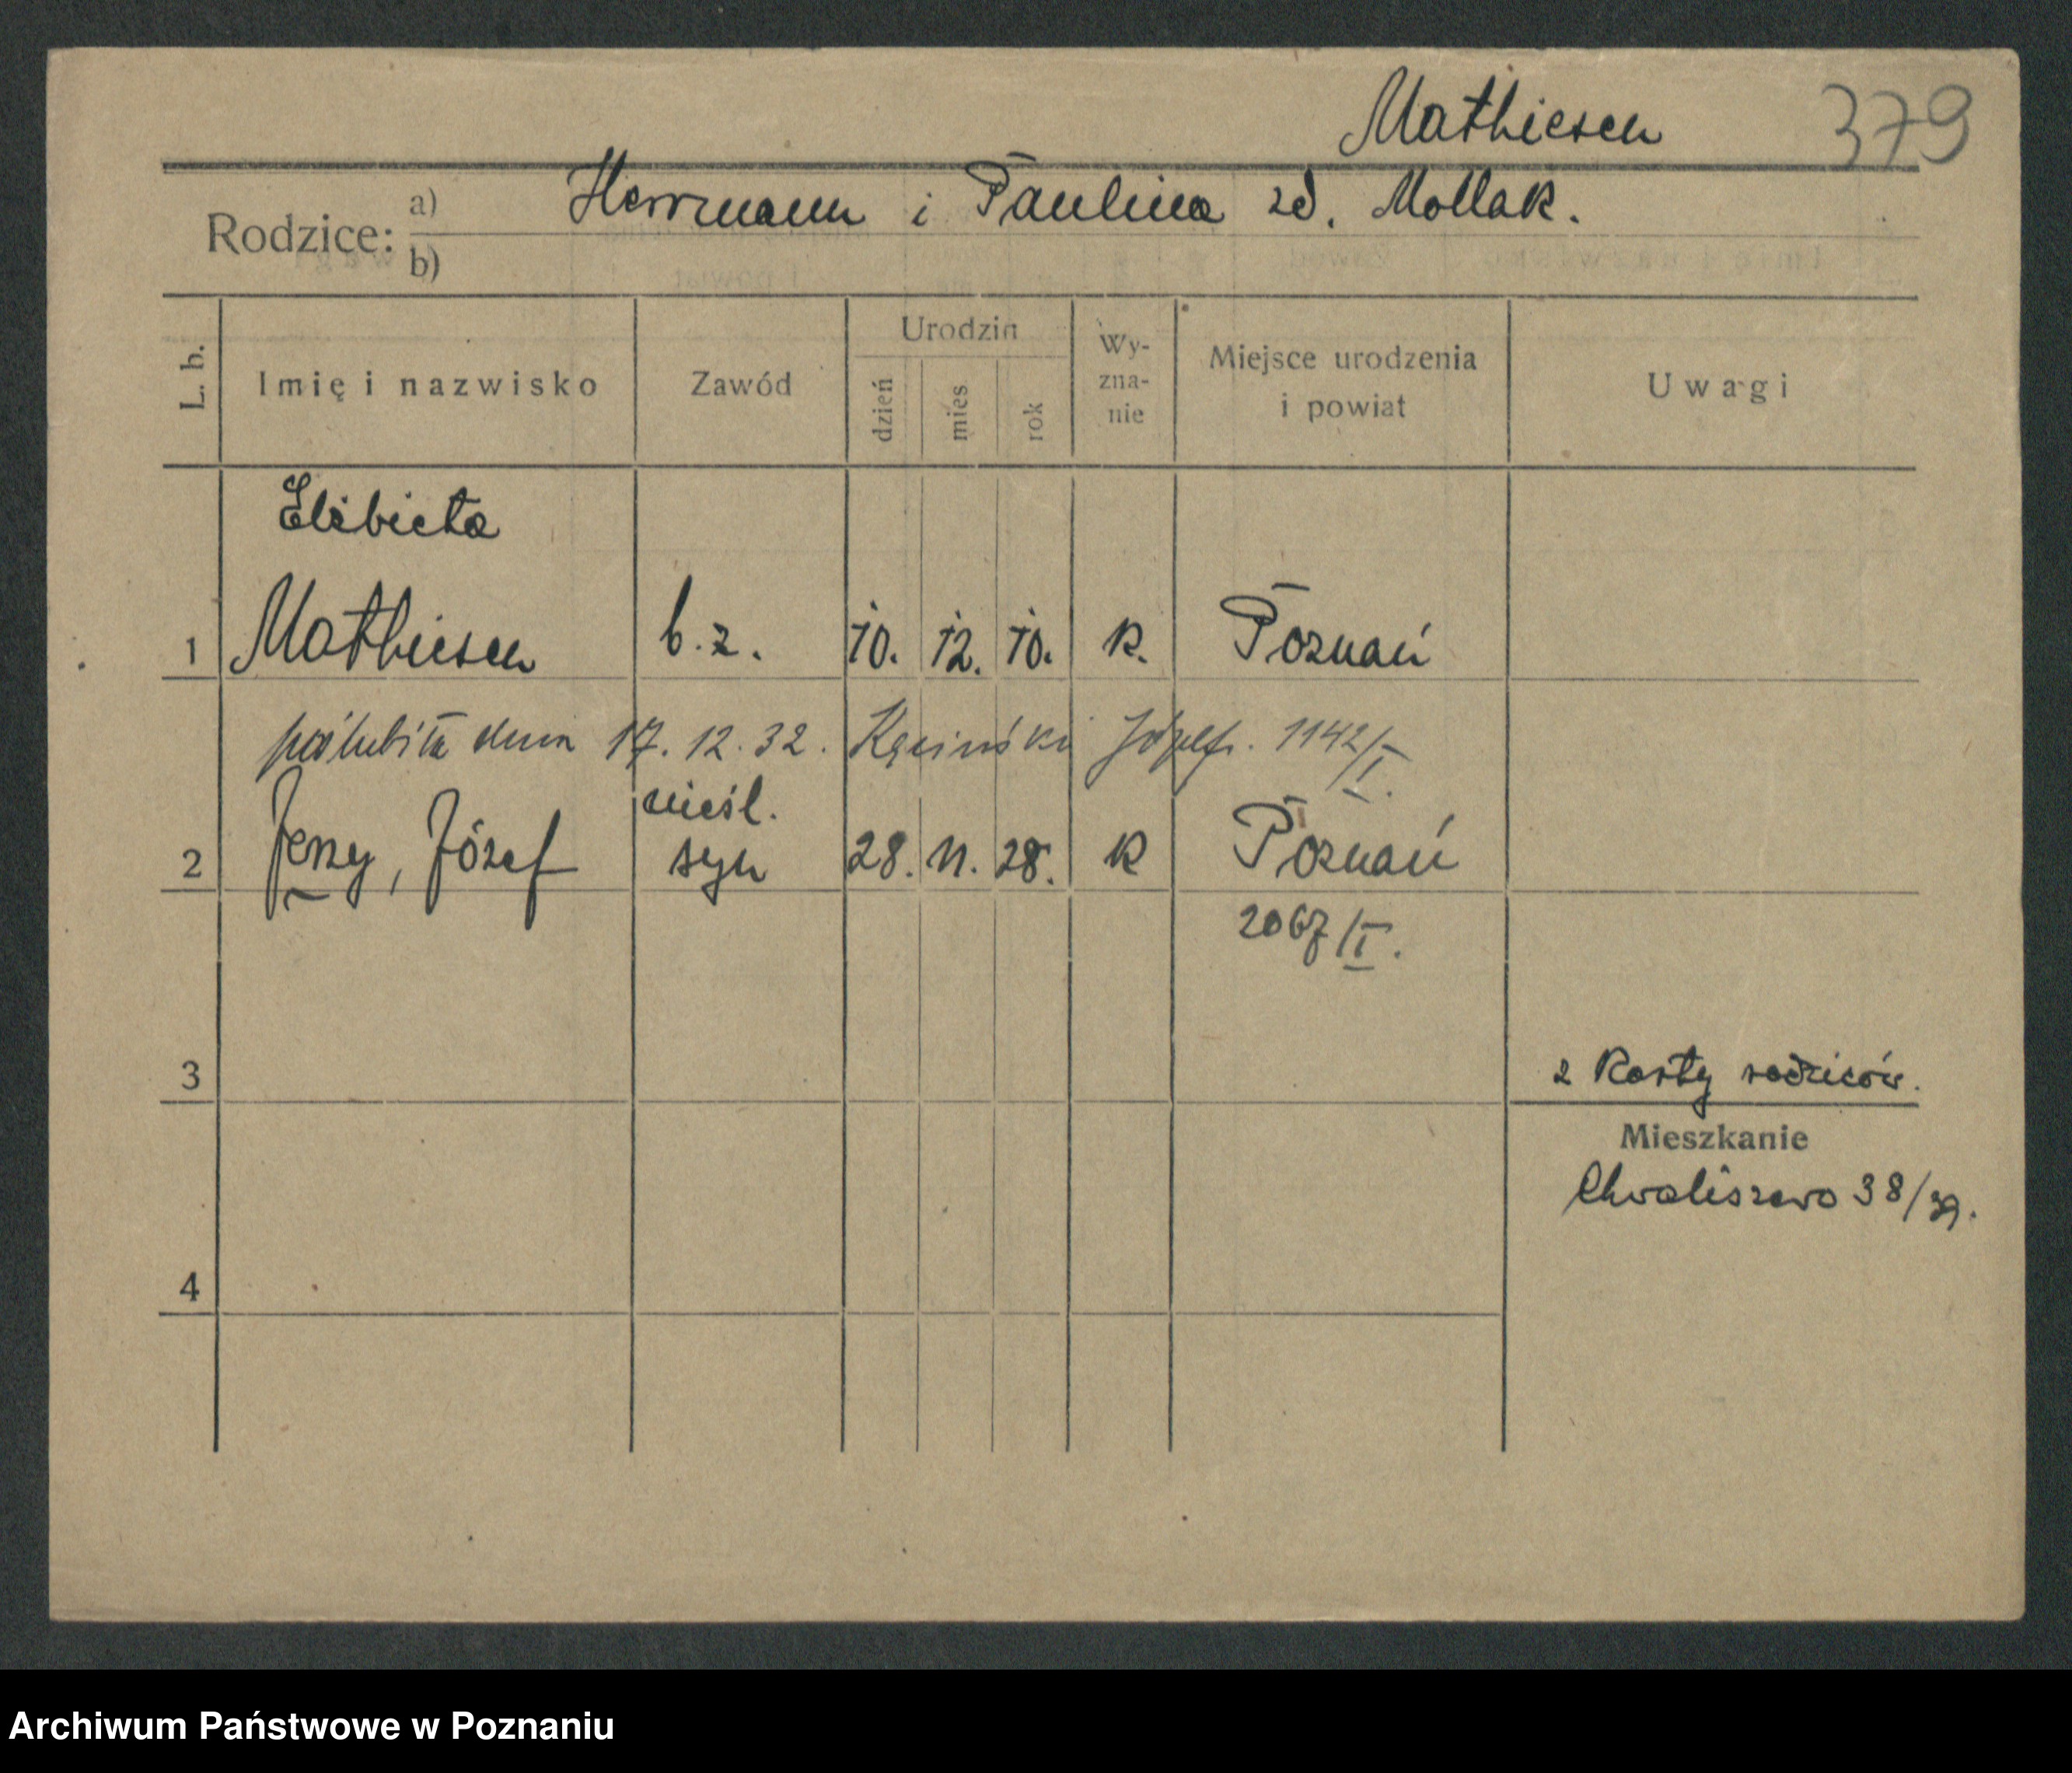 Mathiesen 379
Rodzice: a) Herrmann i Paulina zd. Mollak.
b)
L. b. Imię i nazwisko Zawód Urodzin dzień mies rok Wy-zna-nie Miejsce urodzenia i powiat Uwagi
Elżbieta
1 Mathiesen b. z. 10. 12. 10. k. Poznań
poślubiła dnia 17. 12. 32. Kęciński Józef. 1142/I.
nieśl.
2 Jerzy, Józef syn 28. 11. 28. k Poznań
2067/I.
3 2 Karty rodziców.
Mieszkanie
Chwaliszewo 38/39.
4
Archiwum Państwowe w Poznaniu